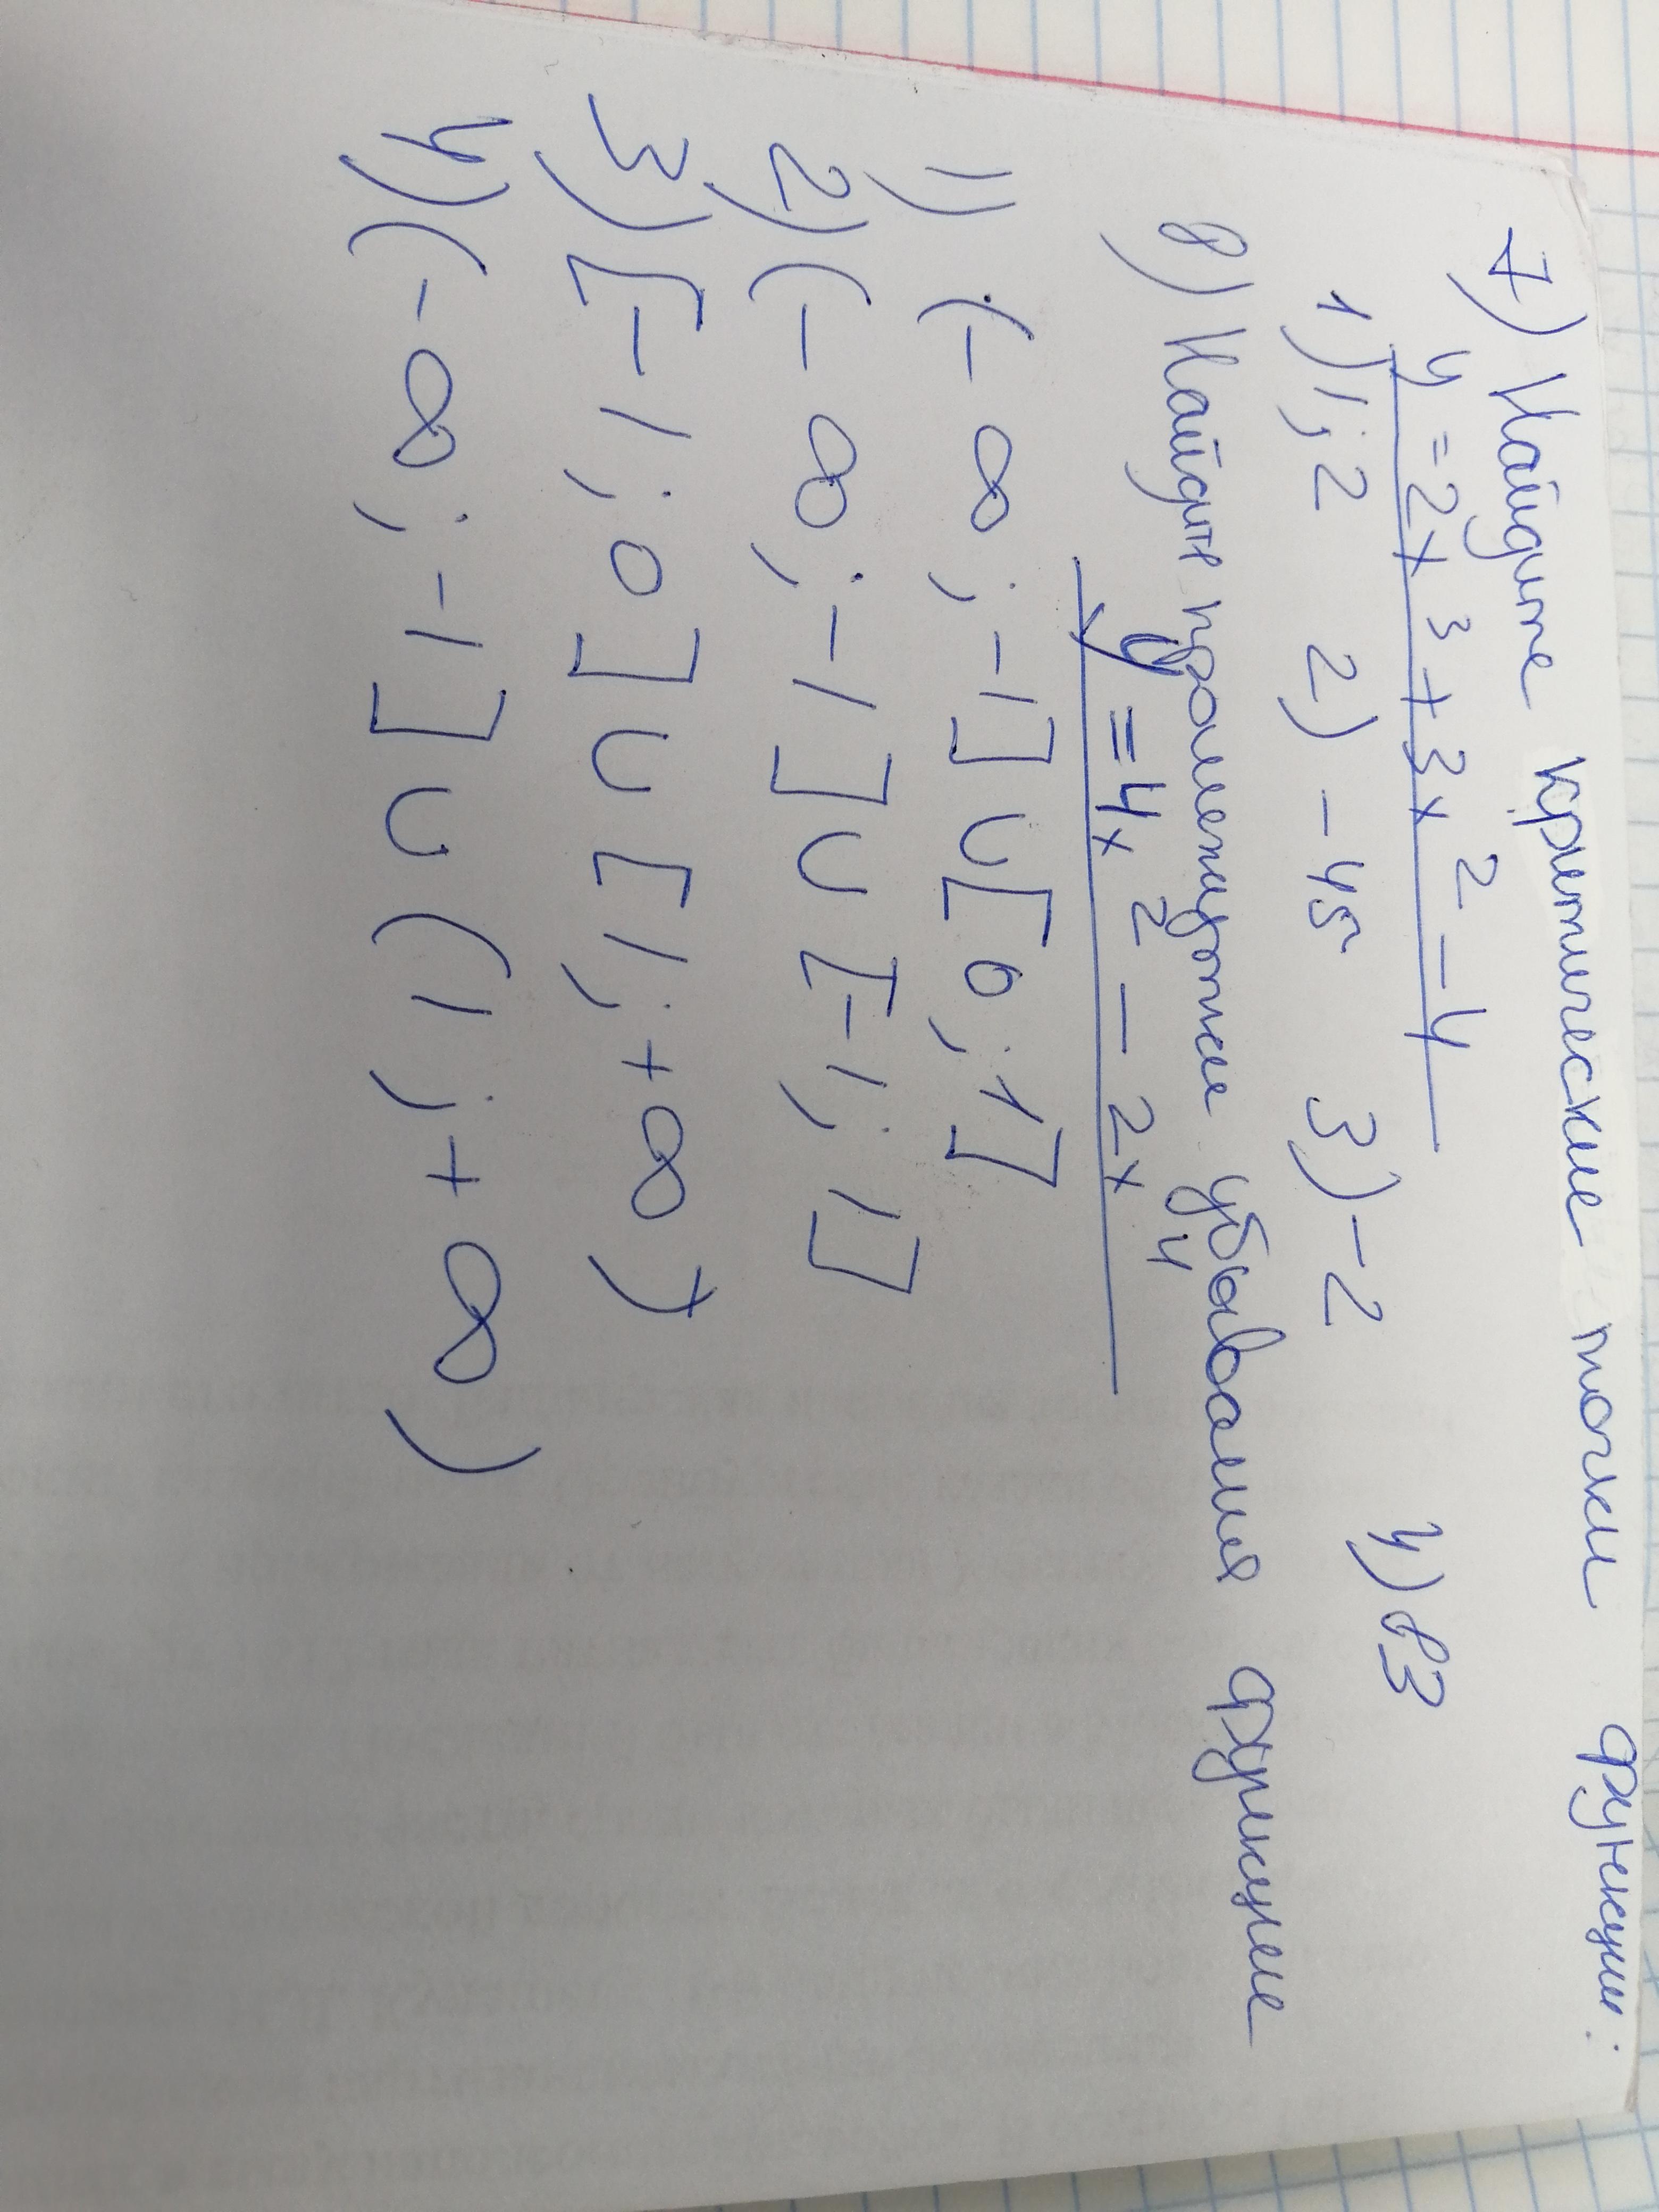 7) Найдите критические точки функции:
y = 2x³ + 3x² - 4
1) 1; 2 2) -45 3) -2 4)
8) Найдите промежутки убывания функции
y = 4x² - 2x⁴
1) (-∞; -1] ∪ [0; 1]
2) (-∞; -1] ∪ [-1; 1]
3) [-1; 0] ∪ [1; +∞)
4) (-∞; -1] ∪ (1; +∞)